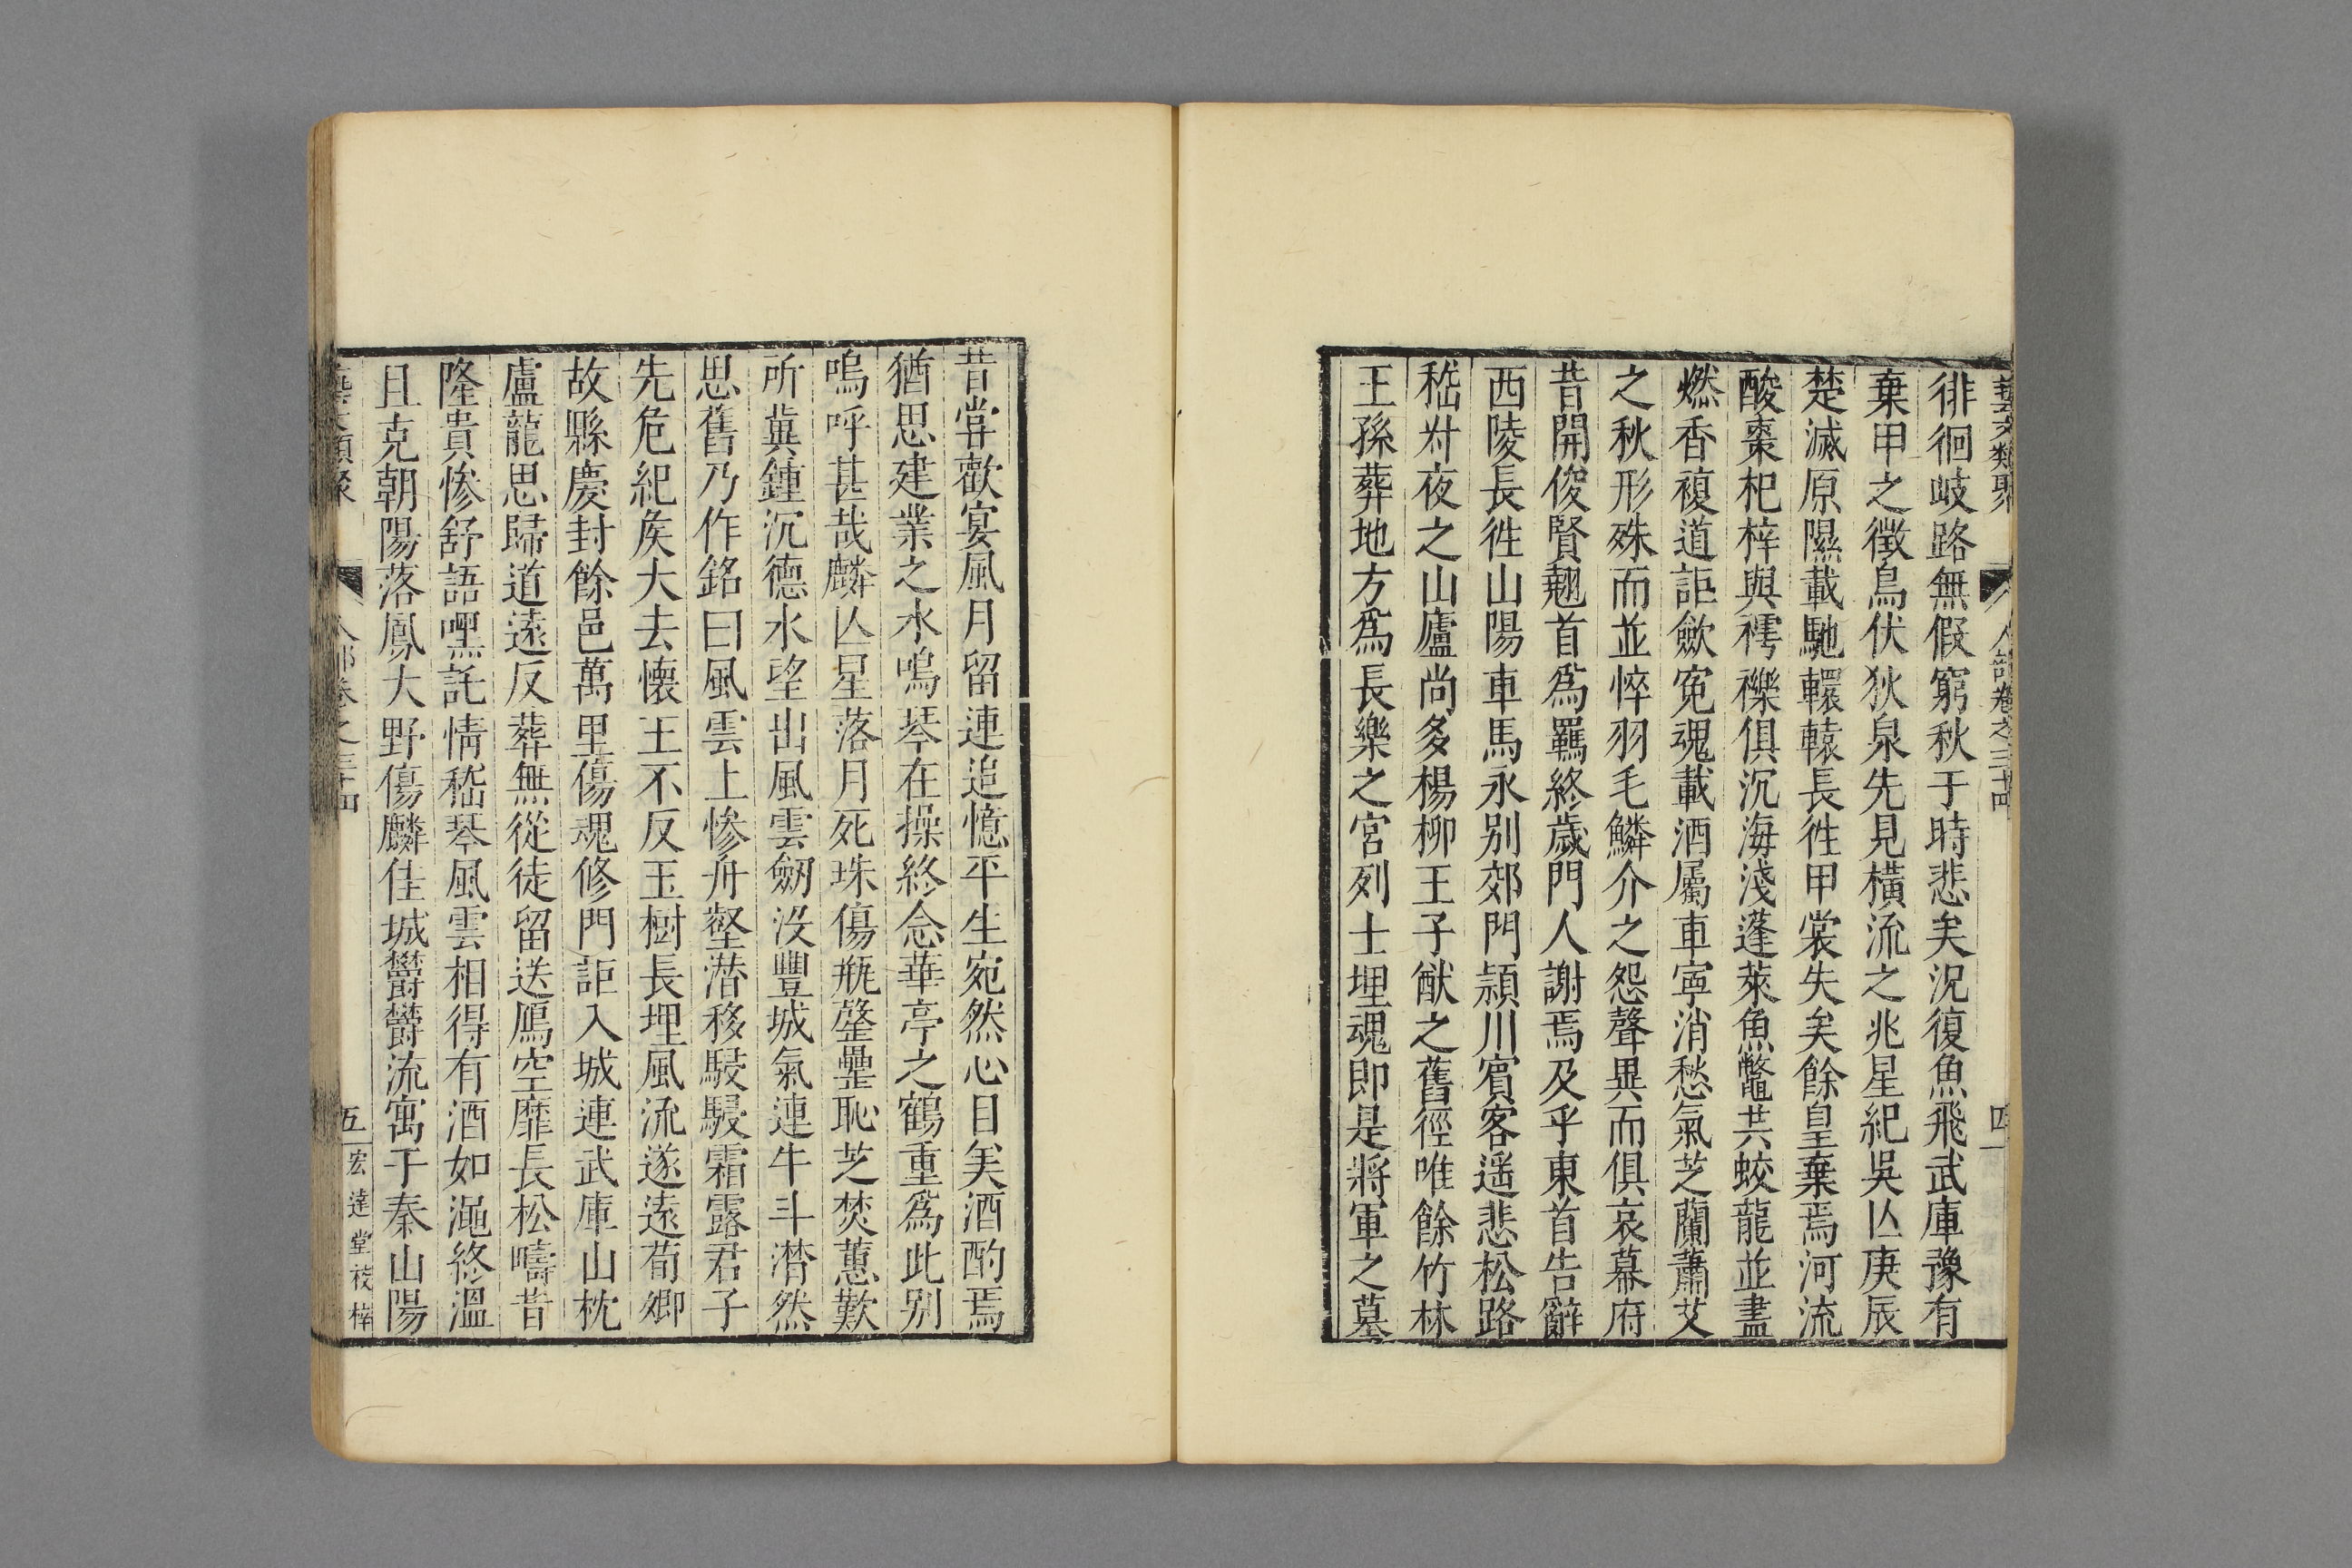 藝文類聚 人部卷之三十四 四
徘徊岐路無假窮秋于時悲矣況復魚飛武庫豫有
棄甲之徵鳥伏狄泉先見橫流之兆星紀吳亾庚辰
楚滅原隰載馳轘轅長徃甲裳失矣餘皇棄焉河流
酸棗杞梓與樗櫟俱沉海淺蓬萊魚鼈共蛟龍並盡
燃香複道詎歛寃魂載酒屬車寧消愁氣芝蘭蕭艾
之秋形殊而並悴羽毛鱗介之怨聲異而俱哀幕府
昔開俊賢翹首爲羈終歲門人謝焉及乎東首告辭
西陵長徃山陽車馬永别郊門頴川賔客遥悲松路
嵇叔夜之山廬尚多楊柳王子猷之舊徑唯餘竹林
王孫葬地方爲長樂之宮列士埋魂即是將軍之墓
昔甞歡宴風月留連追憶平生宛然心目矣酒酌焉
猶思建業之水鳴琴在操終念華亭之鶴重爲此别
嗚呼甚哉麟亾星落月死珠傷瓶罄罍恥芝焚蕙歎
所冀鍾沉德水望出風雲劒没豐城氣連牛斗潸然
思舊乃作銘曰風雲上慘舟壑潜移駸駸霜露君子
先危紀矦大去懷王不反玉樹長埋風流遂遠荀卿
故縣慶封餘邑萬里傷魂修門詎入城連武庫山枕
盧龍思歸道遠反葬無從徒留送鴈空靡長松疇昔
隆貴慘舒語嘿託情嵇琴風雲相得有酒如澠終溫
且克朝陽落鳳大野傷麟佳城欝欝流寓于秦山陽
藝文類聚 人部卷之三十四 五 宏達堂校梓